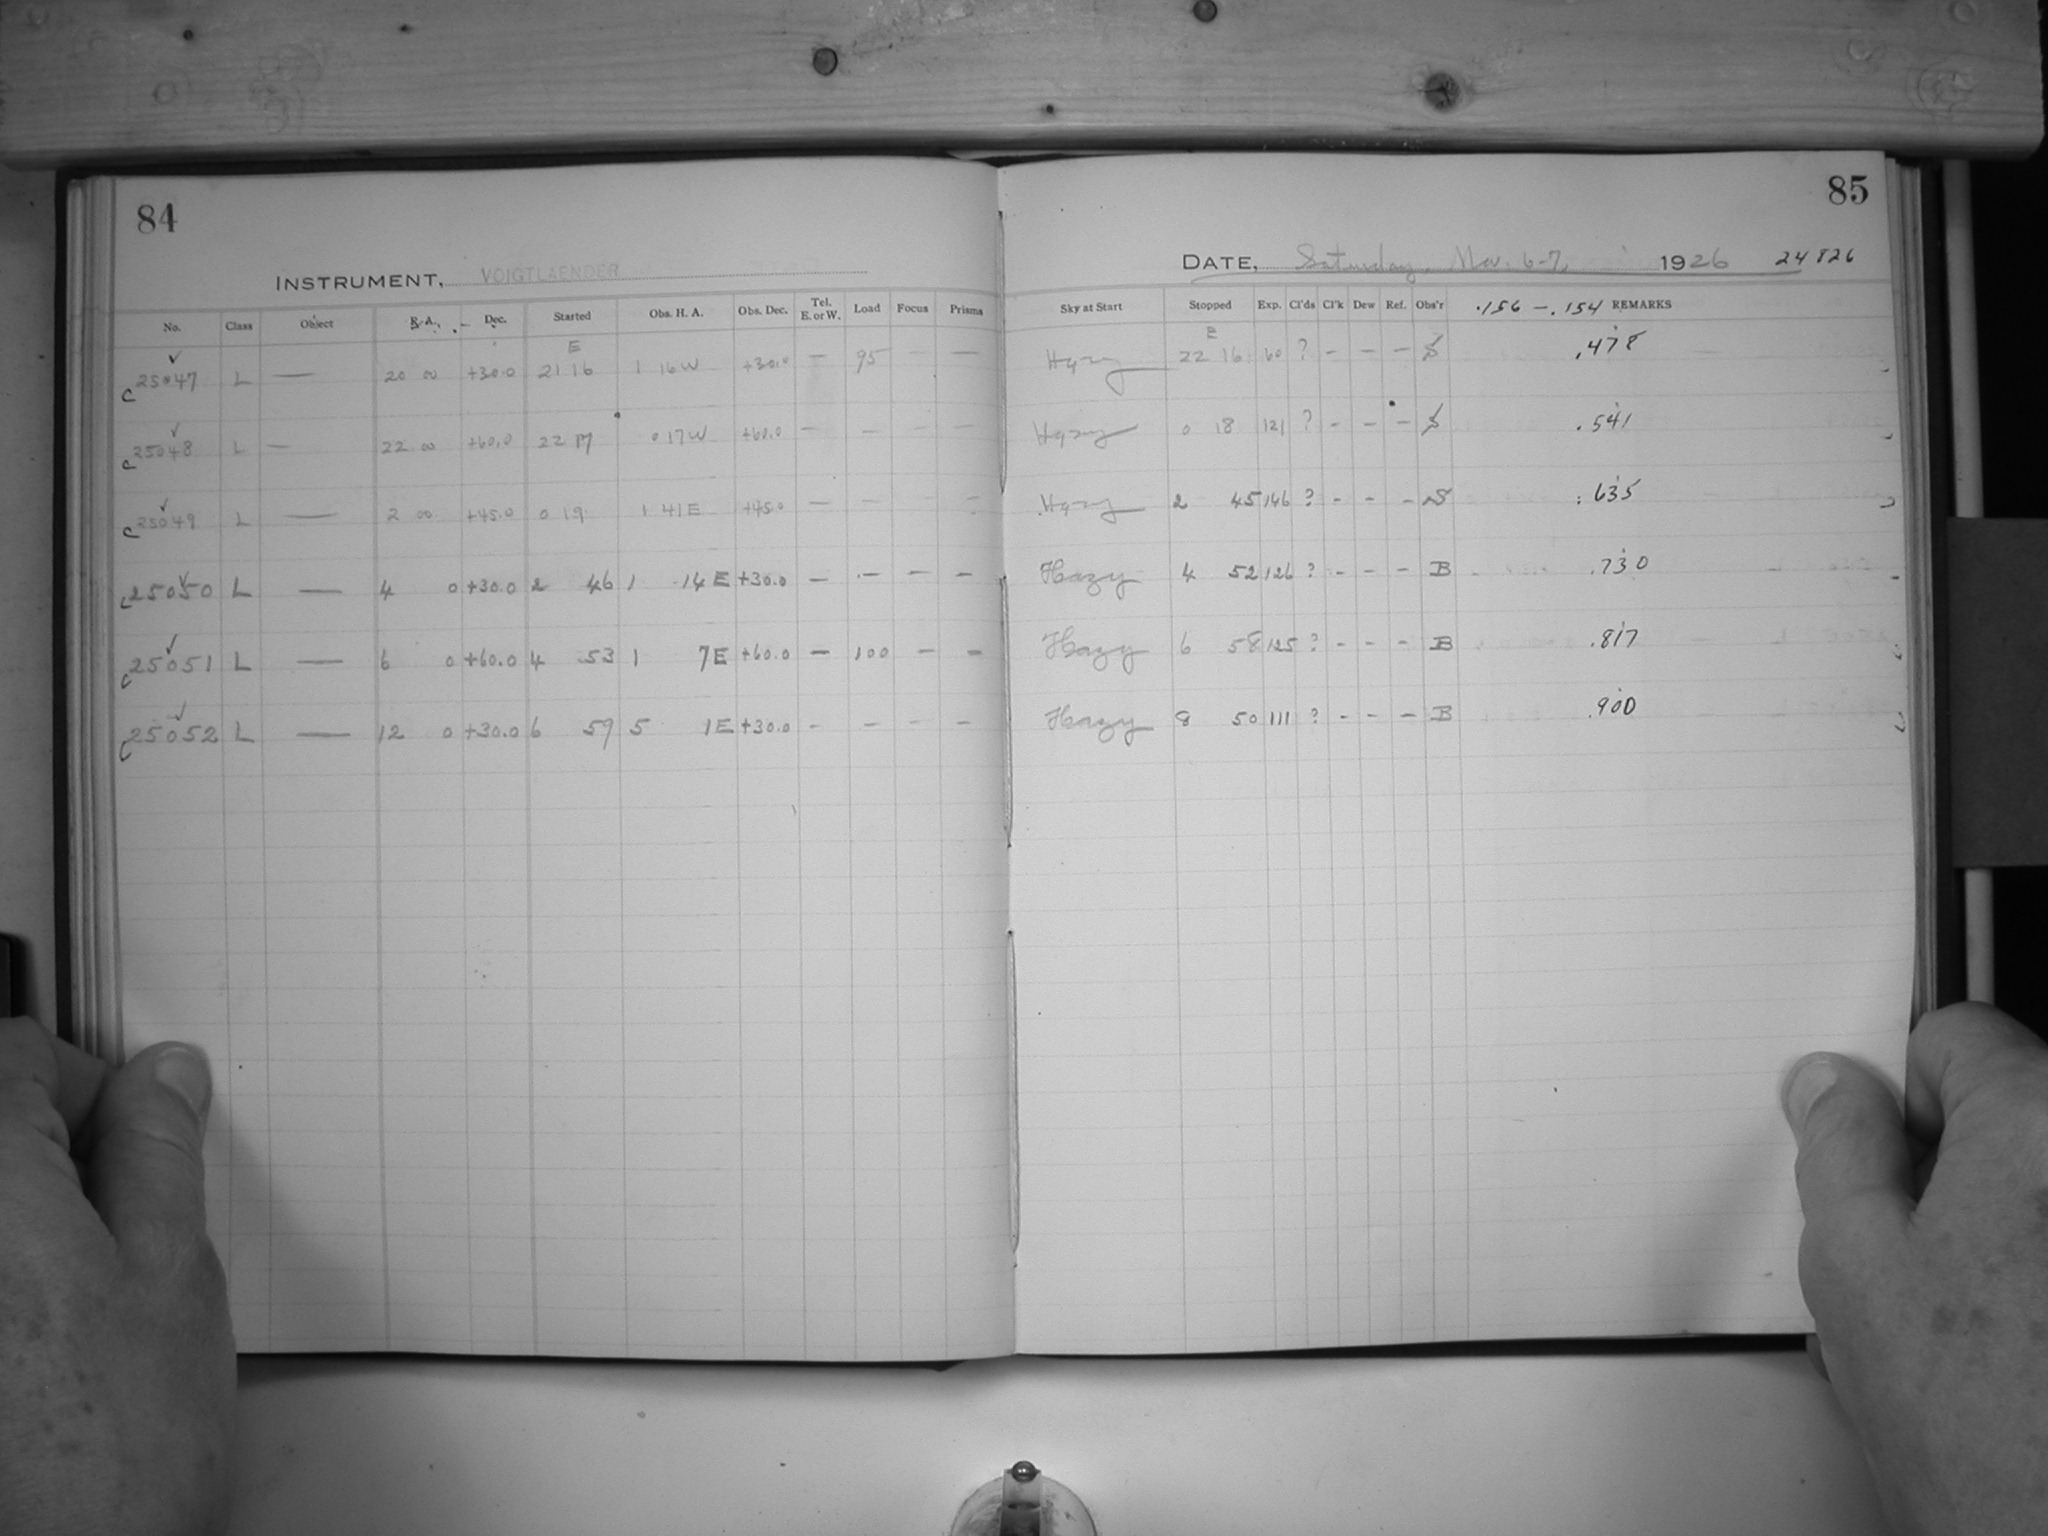 84
INSTRUMENT, VOIGTLAENDER
No. Class Object R.A. Dec. Started Obs. H. A. Obs. Dec. Tel. E. or W. Load Focus Prisms
E
C 25047 ✓ L — 20 00 +30.0 21 16 1 16 W +30.0 — 95 — —
C 25048 ✓ L — 22 00 +60.0 22 17 0 17 W +60.0 — — — —
C 25049 ✓ L — 2 00 +45.0 0 19 1 41 E +45.0 — — — —
C 25050 ✓ L — 4 0 +30.0 2 46 1 14 E +30.0 — — — —
C 25051 ✓ L — 6 0 +60.0 4 53 1 7 E +60.0 — 100 — —
C 25052 ✓ L — 12 0 +30.0 6 59 5 1 E +30.0 — — — —
85
DATE, Saturday, Nov. 6-7, 1926 24 826
Sky at Start Stopped Exp. Cl'ds Cl'k Dew Ref. Obs'r .156 — .154 REMARKS
E
Hazy 22 16 60 ? — — — S .478
Hazy 0 18 121 ? — — — S .541
Hazy 2 45 146 ? — — — S .635
Hazy 4 52 126 ? — — — B .730
Hazy 6 58 125 ? — — — B .817
Hazy 8 50 111 ? — — — B .900